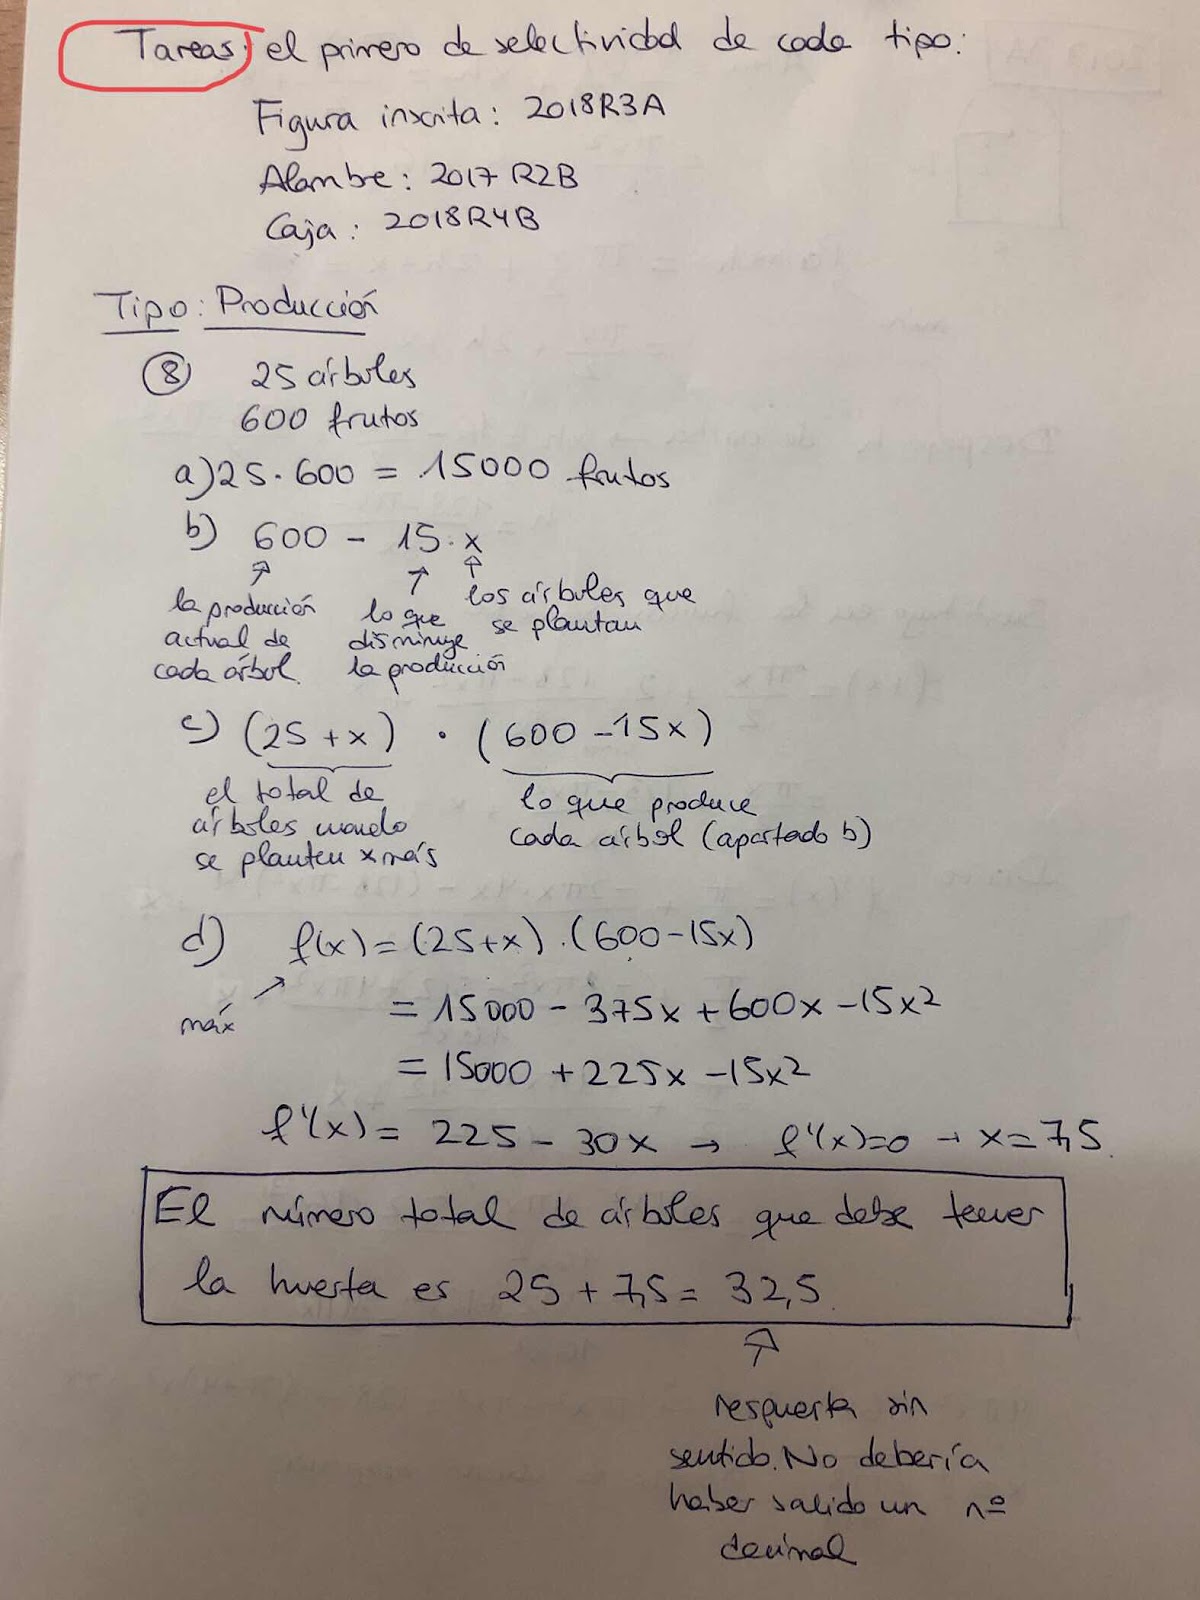 Tareas: el primero de selectividad de cada tipo:
Figura inscrita: 2018R3A
Alambre: 2017 R2B
Caja: 2018R4B
Tipo: Producción
⑧ 25 árboles
600 frutos
a) 25 · 600 = 15000 frutos
b) 600 - 15 · x
la producción actual de cada árbol.
lo que disminuye la producción
los árboles que se plantan
c) (25 + x) · (600 - 15x)
el total de árboles cuando se planten x más
lo que produce cada árbol (apartado b)
d) f(x) = (25+x) · (600-15x)
máx
= 15000 - 375x + 600x - 15x²
= 15000 + 225x - 15x²
f'(x) = 225 - 30x → f'(x)=0 → x = 7,5.
El número total de árboles que debe tener
la huerta es 25 + 7,5 = 32,5.
respuesta sin
sentido. No debería
haber salido un nº
decimal